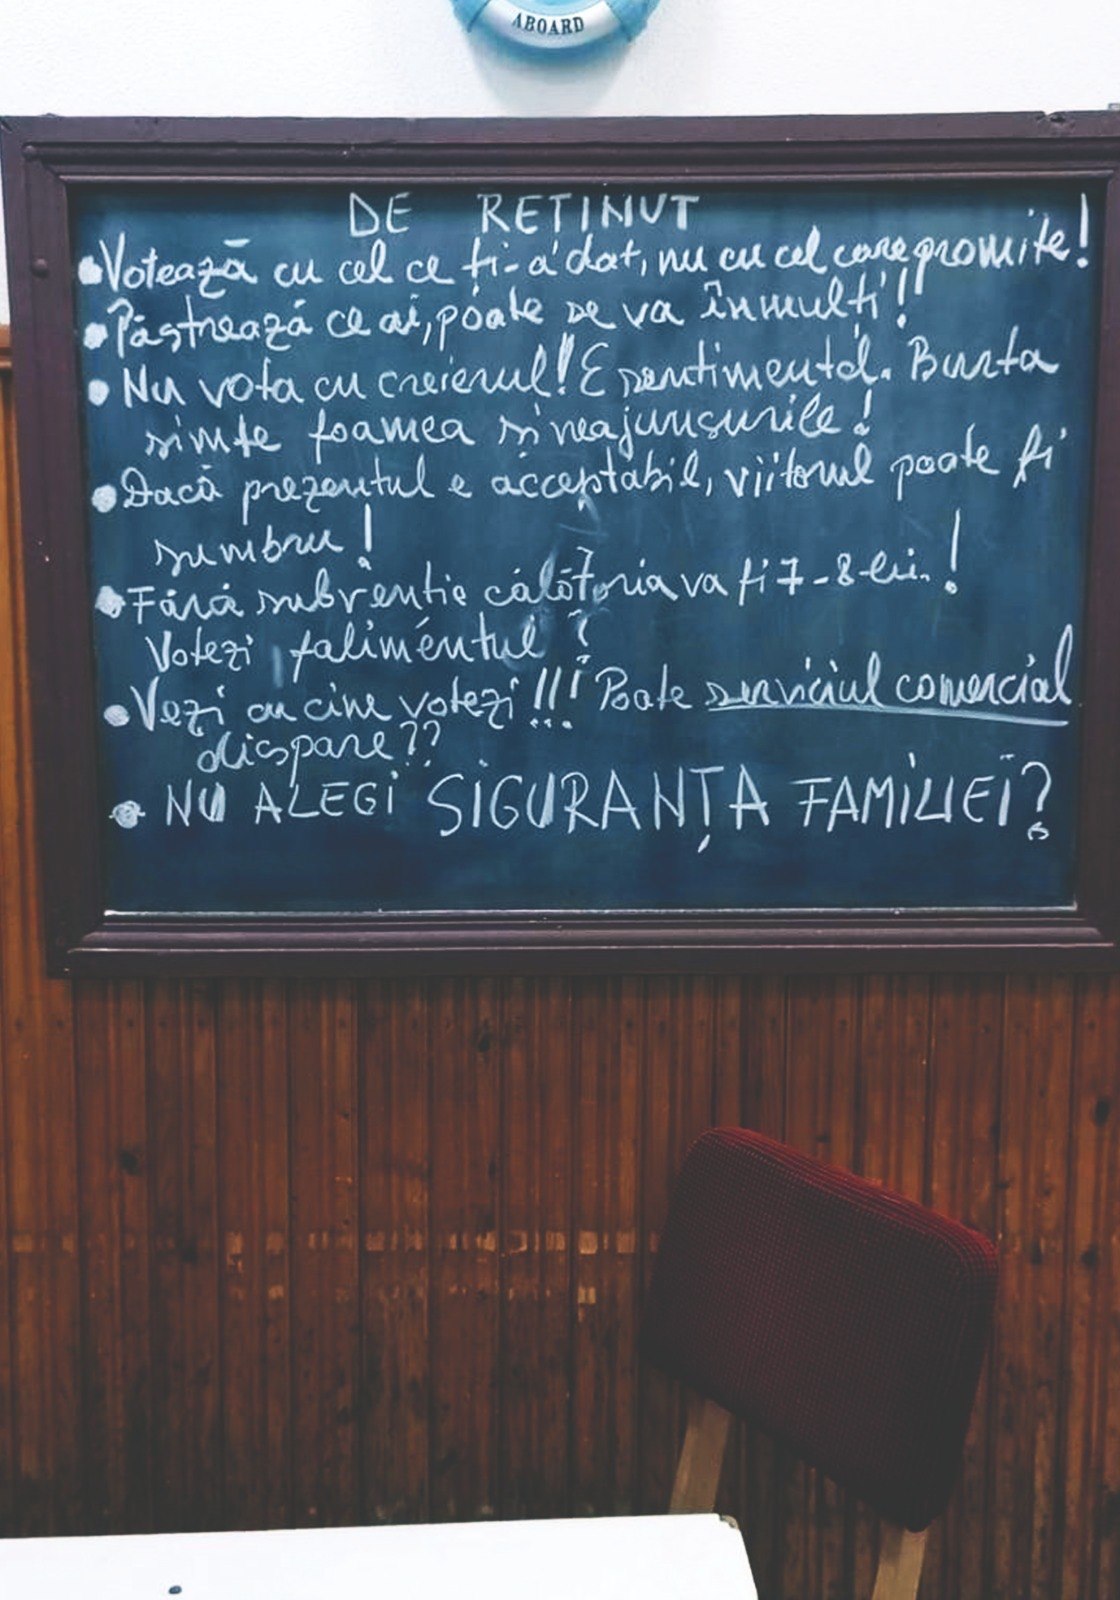 ABOARD
DE RETINUT
• Votează cu cel ce ți-a dat, nu cu cel care promite!
• Păstrează ce ai, poate se va înmulți!!
• Nu vota cu creierul! E sentimental. Burta
simte foamea și neajunsurile!
• Dacă prezentul e acceptabil, viitorul poate fi
sumbru!
• Fără subvenție călătoria va fi 7-8 lei.!
Votezi falimentul?
• Vezi cu cine votezi!!! Poate serviciul comercial
dispare??
• NU ALEGI SIGURANȚA FAMILIEI?